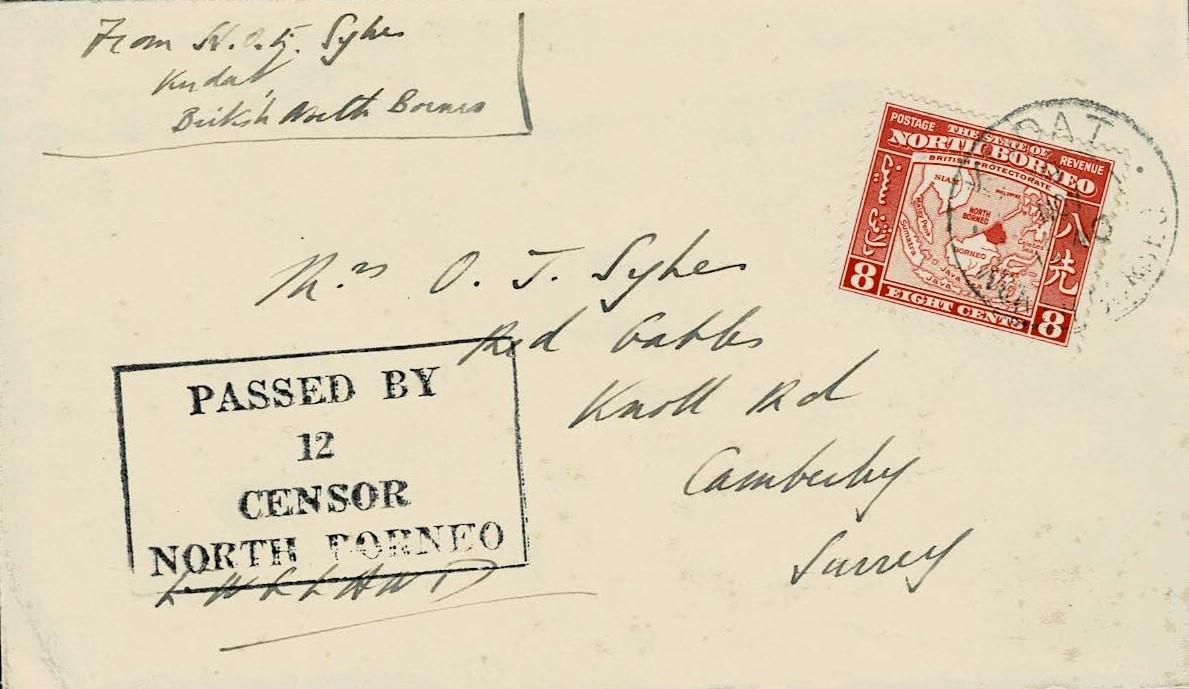 From H.O.K. Sykes
Kudat,
British North Borneo
POSTAGE THE STATE OF REVENUE
NORTH BORNEO
BRITISH PROTECTORATE
SIAM
PHILIPPINE
NORTH BORNEO
Malay Pen.
Sumatra
BORNEO
Celebes
JAVA
八
先
8 EIGHT CENTS 8
DAT
Mrs O. J. Sykes
Red Gables
Knoll Rd
Camberley
Surrey
PASSED BY
12
CENSOR
NORTH BORNEO
ENGLAND